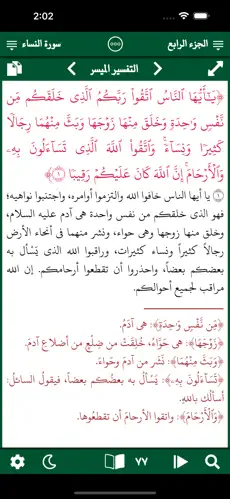 2:02
الجزء الرابع
سورة النساء
التفسير الميسر
﴿يَـٰٓأَيُّهَا ٱلنَّاسُ ٱتَّقُوا۟ رَبَّكُمُ ٱلَّذِى خَلَقَكُم مِّن
نَّفْسٍ وَٰحِدَةٍ وَخَلَقَ مِنْهَا زَوْجَهَا وَبَثَّ مِنْهُمَا رِجَالًا
كَثِيرًا وَنِسَآءً ۚ وَٱتَّقُوا۟ ٱللَّهَ ٱلَّذِى تَسَآءَلُونَ بِهِۦ
وَٱلْأَرْحَامَ ۚ إِنَّ ٱللَّهَ كَانَ عَلَيْكُمْ رَقِيبًا ١﴾
١ يا أيها الناس خافوا الله والتزموا أوامره، واجتنبوا نواهيه؛
فهو الذي خلقكم من نفس واحدة هي آدم عليه السلام،
وخلق منها زوجها وهي حواء، ونشر منهما في أنحاء الأرض
رجالاً كثيراً ونساء كثيرات، وراقبوا الله الذي يَسْأل به
بعضكم بعضاً، واحذروا أن تقطعوا أرحامكم. إن الله
مراقب لجميع أحوالكم.
﴿مِّن نَّفْسٍ وَٰحِدَةٍ﴾: هي آدَمُ.
﴿زَوْجَهَا﴾: هي حَوَّاءُ، خُلِقَتْ من ضِلَعٍ من أضلاعِ آدمَ.
﴿وَبَثَّ مِنْهُمَا﴾: نَشَر من آدمَ وحَواءَ.
﴿تَسَآءَلُونَ بِهِۦ﴾: يَسْألُ به بعضُكم بعضاً، فيقولُ السائلُ:
أسألُكَ باللهِ.
﴿وَٱلْأَرْحَامَ﴾: واتقوا الأرحامَ أن تقطعُوها.
٧٧